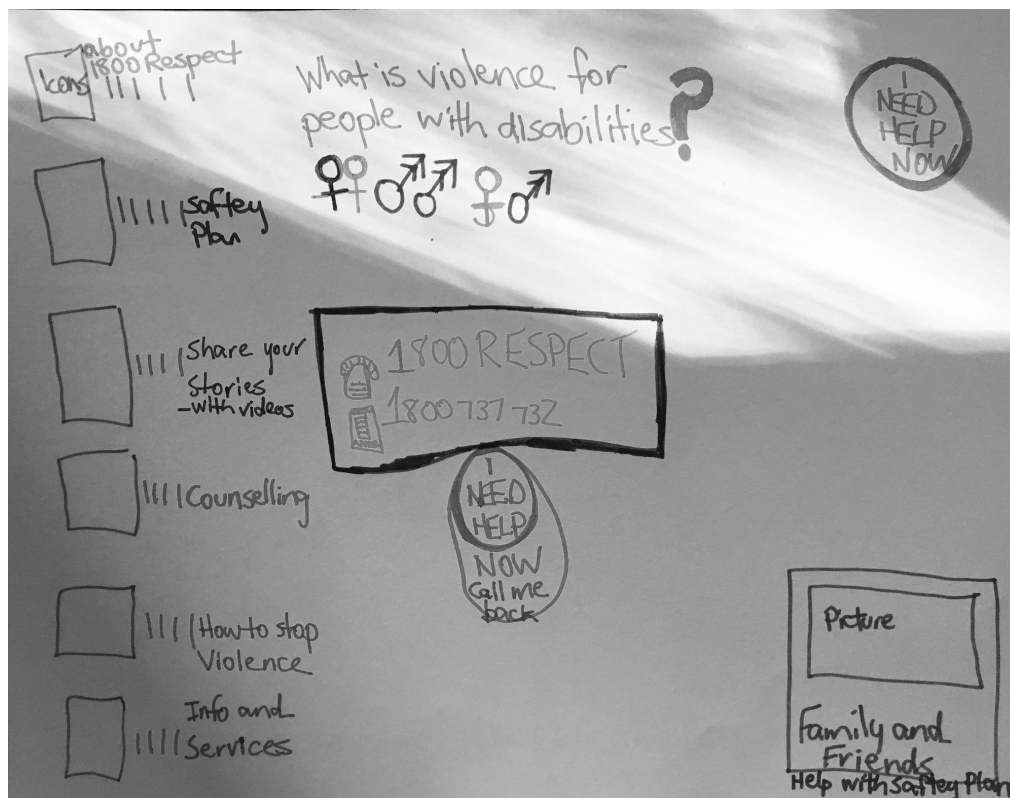 about
1800 Respect
Icons
What is violence for
people with disabilities?
I
NEED
HELP
NOW
Saftey
Plan
Share your
Stories
-with videos
1800 RESPECT
1800 737 732
I
NEED
HELP
NOW
Call me
back
Counselling
How to stop
Violence
Info and
Services
Picture
Family and
Friends
Help with Saftey Plan